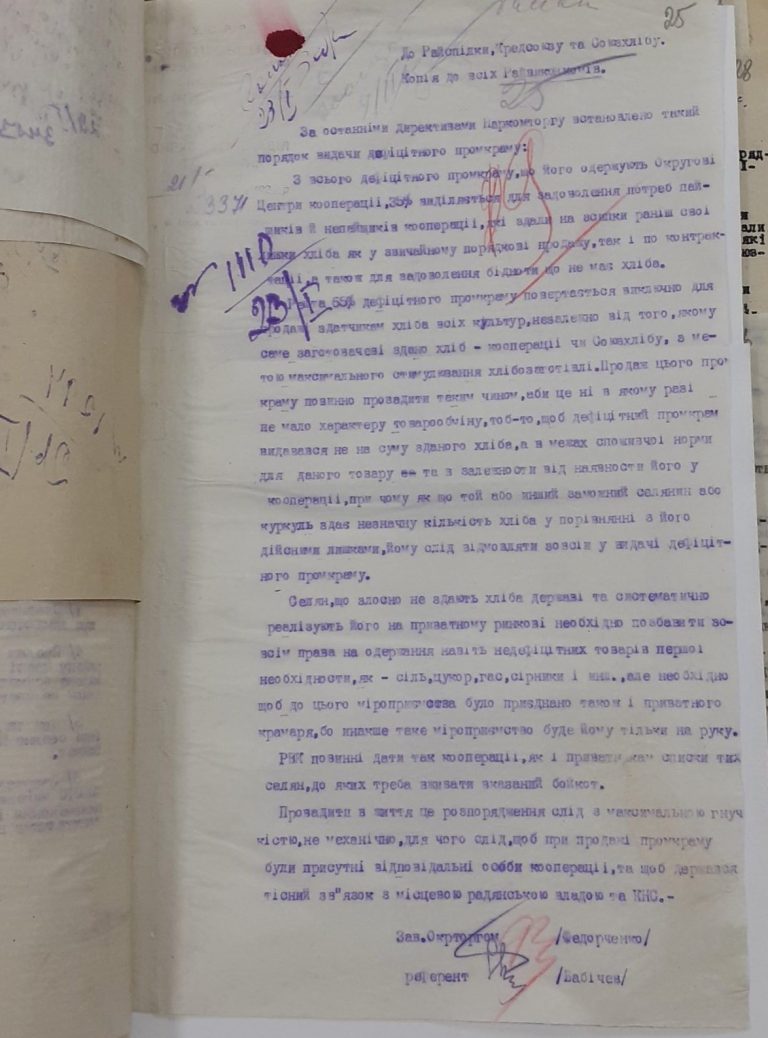 25
До Райспілки, Кредсоюзу та Союзхлібу.
Копія до всіх Райвиконкомів.
23/I
За останніми директивами Наркомторгу встановлено такий
порядок видачи дефіцитного промкраму:
З всього дефіцитного промкраму, що його одержують Округові
Центри кооперації, 35% виділяється для задоволення потреб пай-
щиків й непайщиків кооперації, які здали на зсипки раніш свої
лишки хліба як у звичайному порядкові продажу, так і по контрак-
тації, а також для задоволення бідноти що не має хліба.
1110
23/I
Решта 65% дефіцитного промкраму повертається виключно для
продажі здатчикам хліба всіх культур, незалежно від того, якому
саме заготовачеві здано хліб - кооперації чи Союзхлібу, з ме-
тою максимального стимулювання хлібозаготівлі. Продаж цього пром
краму повинно провадити таким чином, аби це ні в якому разі
не мало характеру товарообміну, тоб-то, щоб дефіцитний промкрам
видавався не на суму зданого хліба, а в межах споживчої норми
для даного товару та в залежности від наявности його у
кооперації, при чому як що той або инший заможний селянин або
куркуль здає незначну кількість хліба у порівнянні з його
дійсними лишками, йому слід відмовляти зовсім у видачі дефіцит-
ного промкраму.
Селян, що злосно не здають хліба державі та систематично
реалізують його на приватному ринкові необхідно позбавити зо-
всім права на одержання навіть недефіцитних товарів першої
необхідности, як - сіль, цукор, гас, сірники і инш., але необхідно
щоб до цього міроприємства було приєднано також і приватного
крамаря, бо инакше таке міроприємство буде йому тільки на руку.
РВК повинні дати так кооперації, як і приватникам списки тих
селян, до яких треба вживати вказаний бойкот.
Провадити в життя це розпорядження слід з максимальною гнуч
кістю, не механічно, для чого слід, щоб при продажі промкраму
були присутні відповідальні особи кооперації, та щоб держався
тісний зв"язок з місцевою радянською владою та КНС.-
Зав.Окрторгом /Федорченко/
референт /Бабічев/